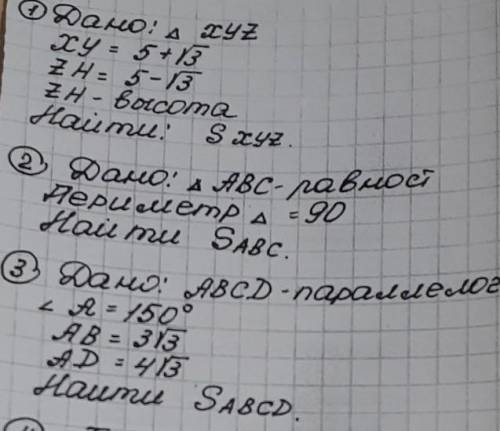 ① Дано: △ XYZ
XY = 5+√3
ZH = 5-√3
ZH - высота
Найти: S XYZ.
② Дано: △ ABC - равност
Периметр △ = 90
Найти S ABC.
③ Дано: ABCD - параллелог
∠ A = 150°
AB = 3√3
AD = 4√3
Найти S ABCD.